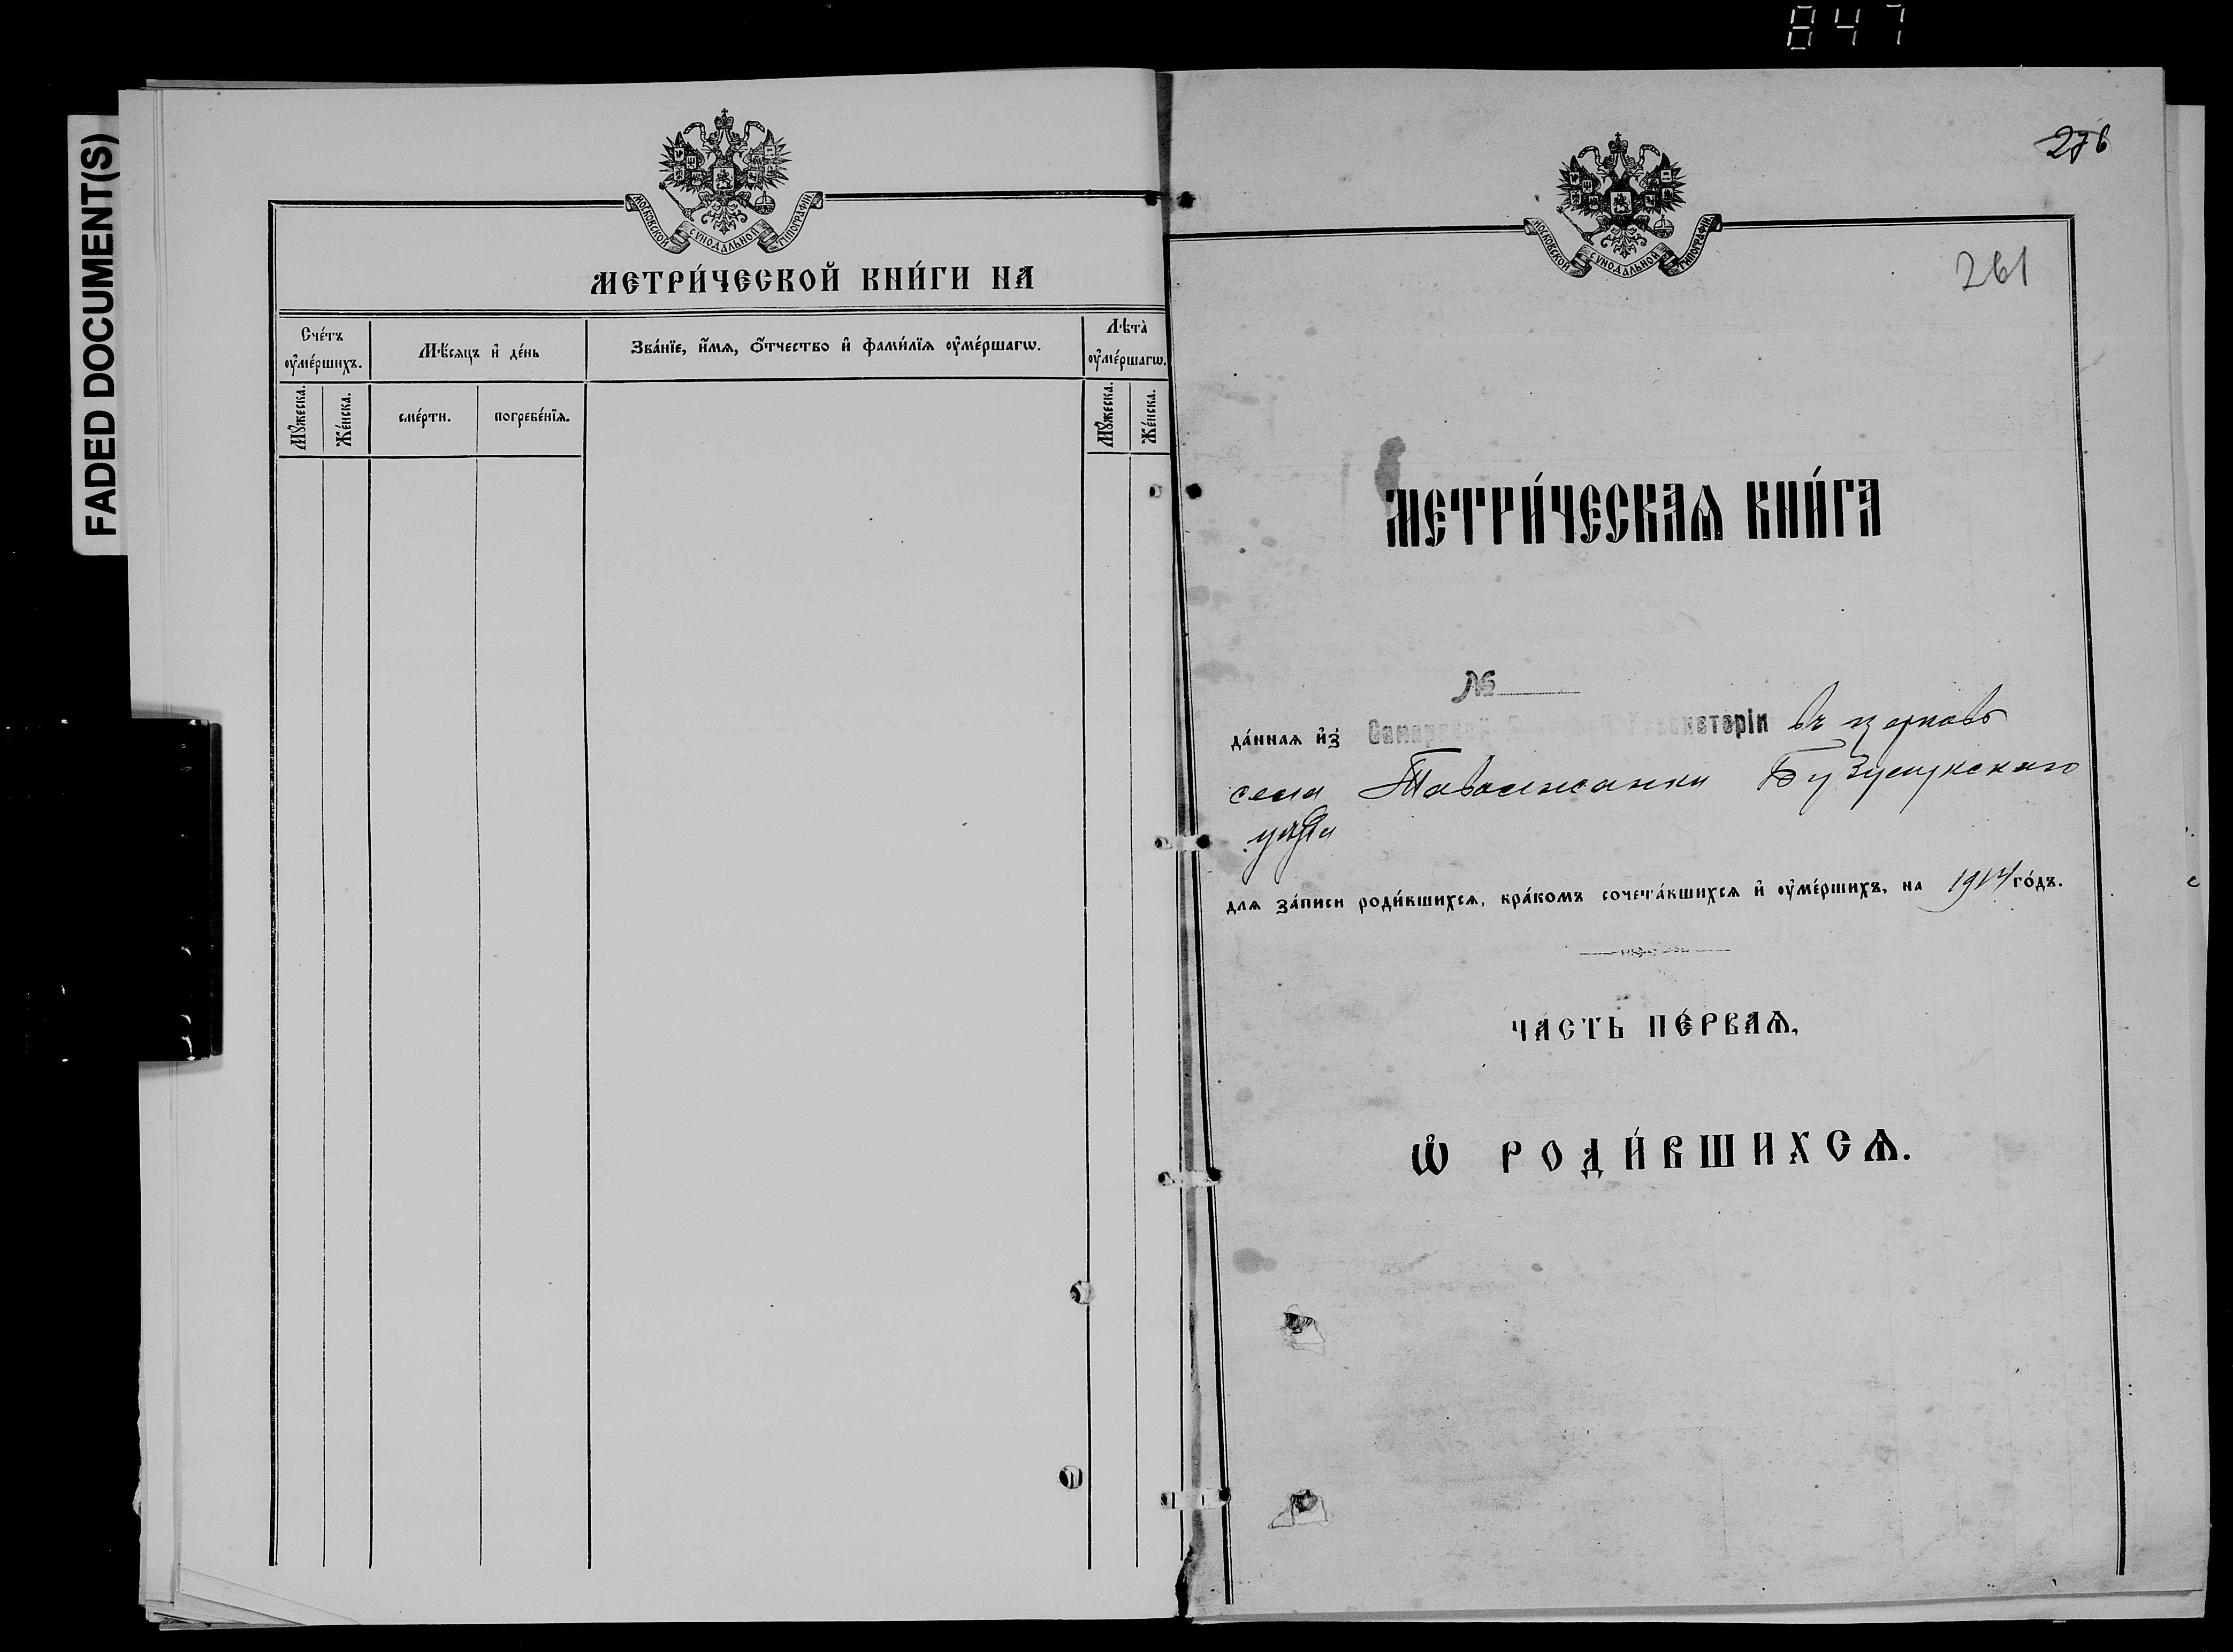 847
FADED DOCUMENT(S)
МОСКОВСКОЙ СѴНОДАЛЬНОЙ ТИПОГРАФІИ
МЕТРИ́ЧЕСКОЙ КНИ́ГИ НА
Сче́тъ ᲂу҆ме́ршихъ.
Мѣ́сяцъ и҆ де́нь
Зва́нїе, и҆́мѧ, ѻ҆́тчество и҆ фами́лїѧ ᲂу҆ме́ршагѡ.
Лѣта̀ ᲂу҆ме́ршагѡ.
Мꙋ́жеска.
Же́нска.
сме́рти.
погребе́нїѧ.
Мꙋ́жеска.
Же́нска.
276
МОСКОВСКОЙ СѴНОДАЛЬНОЙ ТИПОГРАФІИ
261
МЕТРИ́ЧЕСКАѦ КНИ́ГА
№
да́ннаѧ и҆з̾ Самарской Духовной Консисторіи въ церковь
села Таволжанки Бузулукскаго
уѣзда
длѧ за́писи роди́вшихсѧ, бра́комъ сочета́вшихсѧ и҆ ᲂу҆ме́ршихъ, на 1914 го́дъ.
ЧА́СТЬ ПЕ́РВАѦ,
Ѡ҆ РОДИ́ВШИХСѦ.